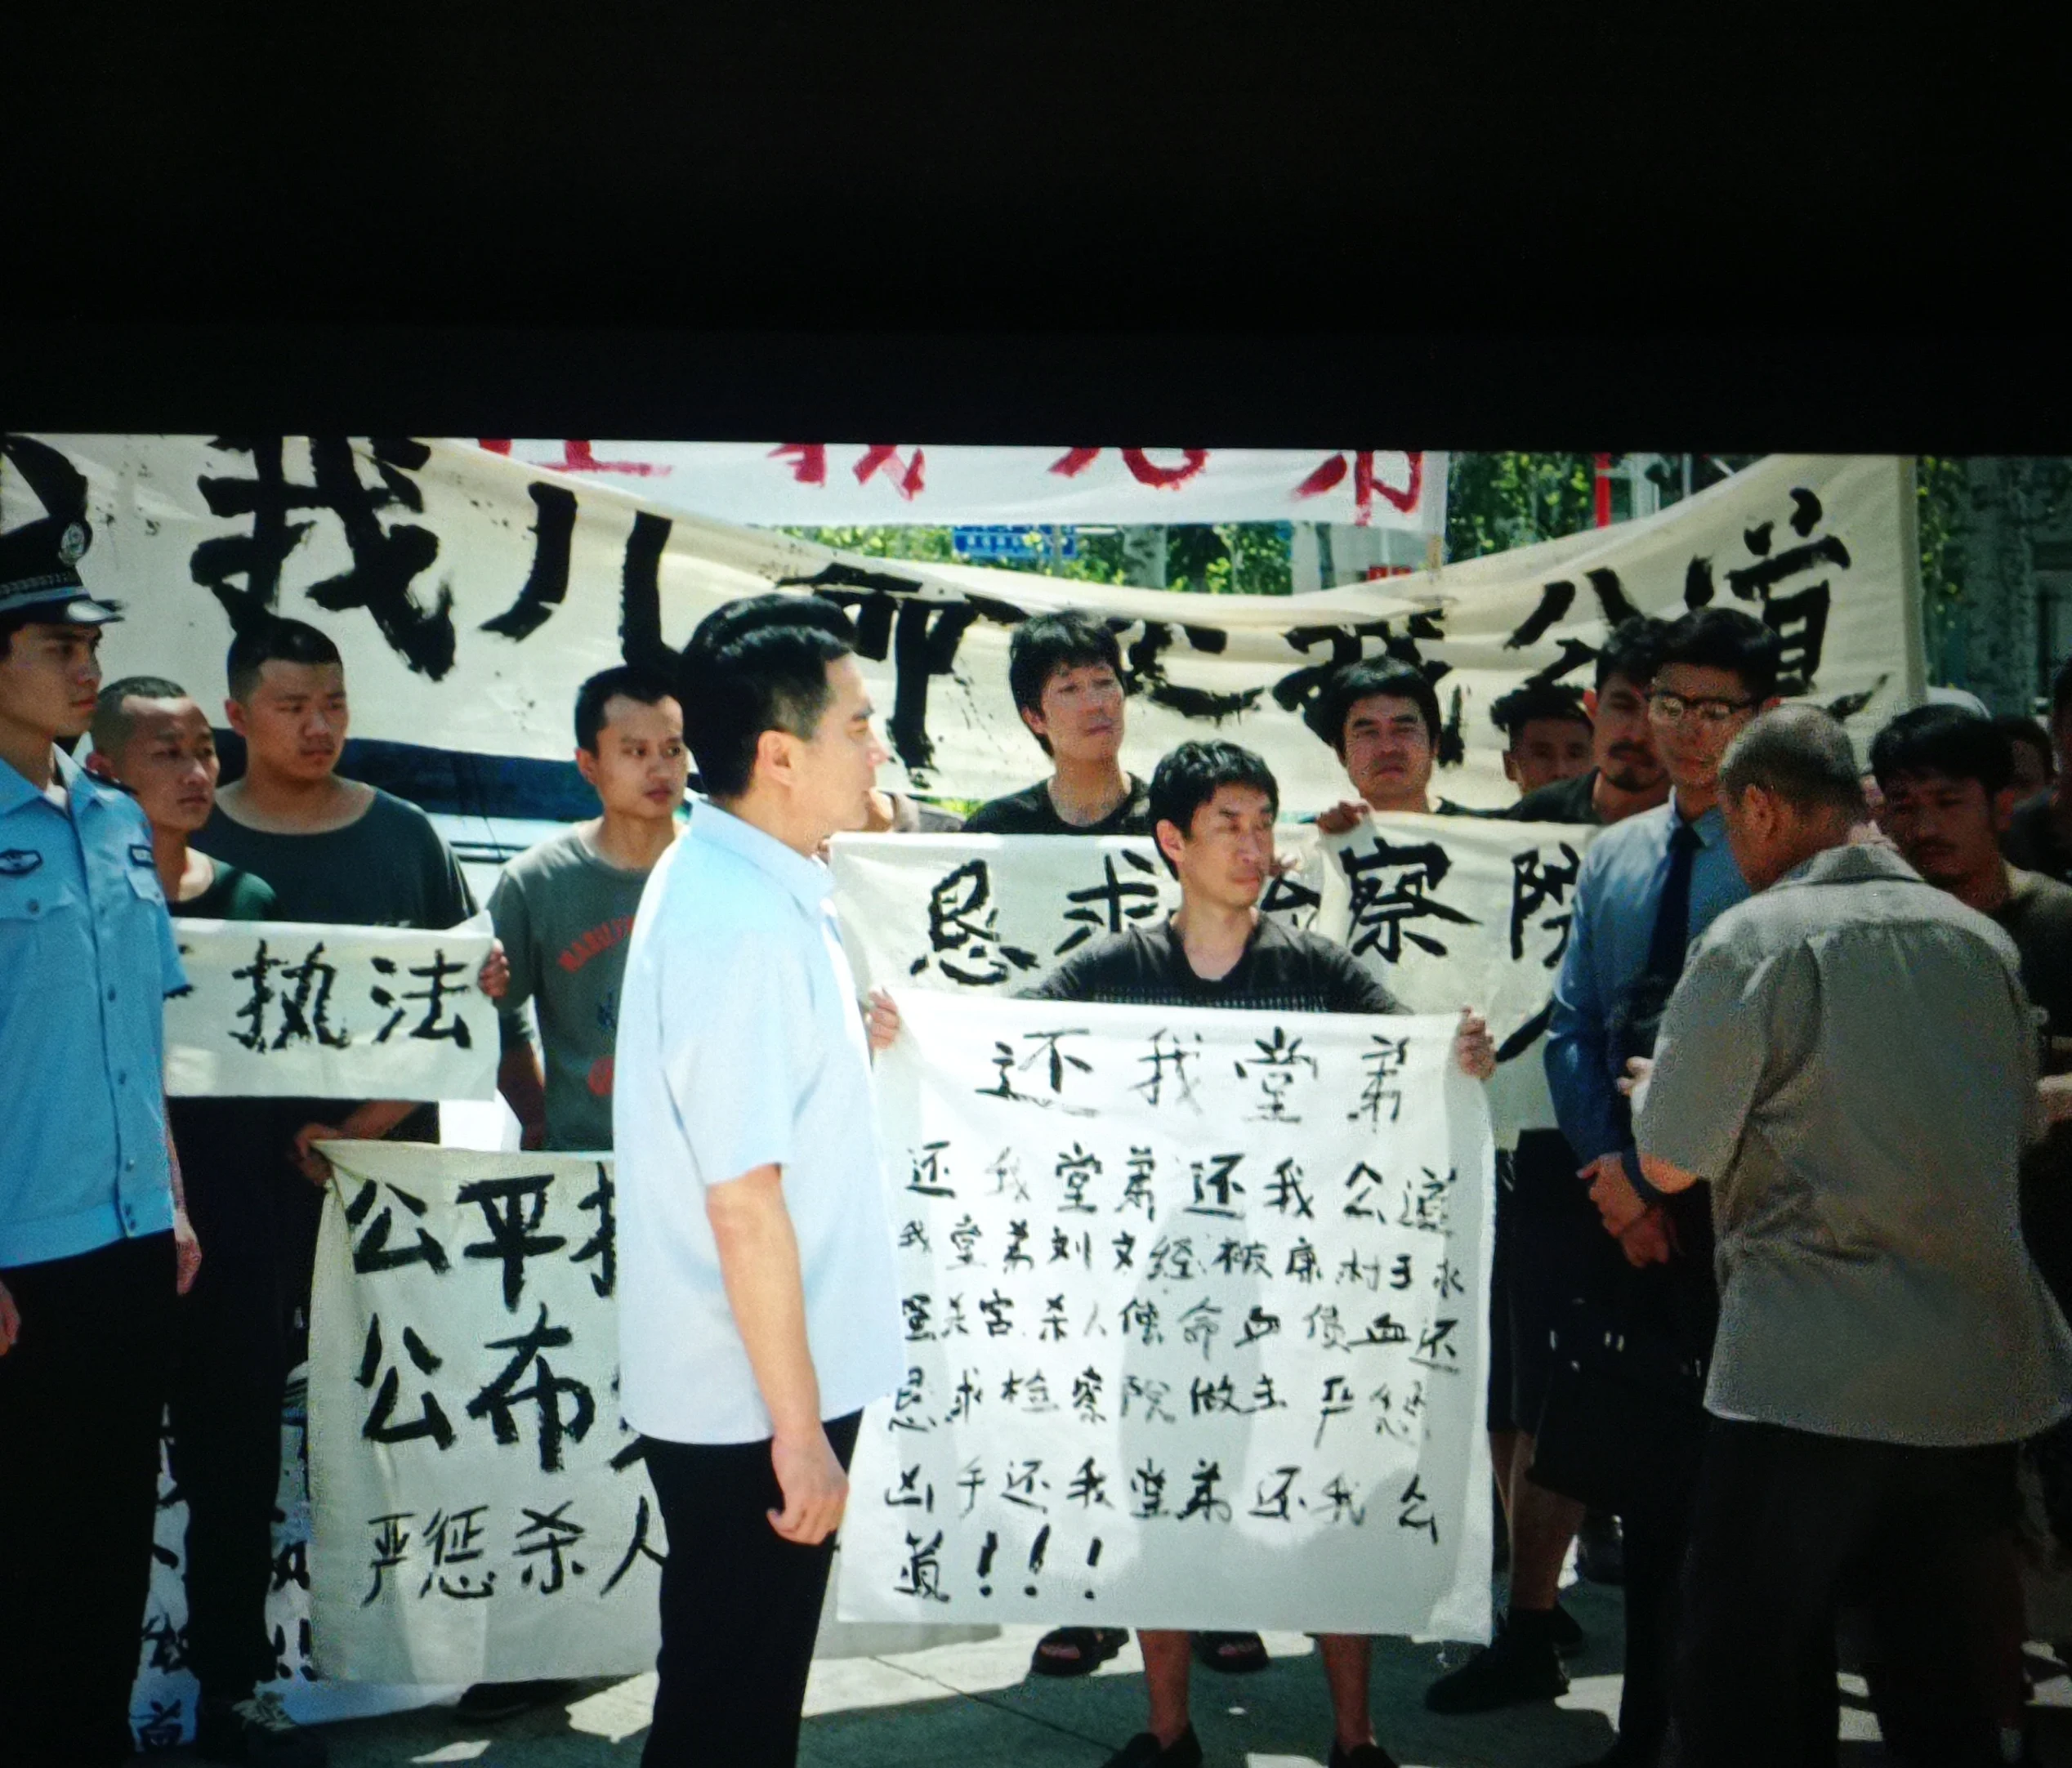 我儿 还我公道
恳求 察院
执法
公平
公布
严惩杀人
还我堂弟
还我堂弟还我公道
我堂弟刘文经被康村王永
强杀害杀人偿命血债血还
恳求检察院做主严惩
凶手还我堂弟还我公
道!!!